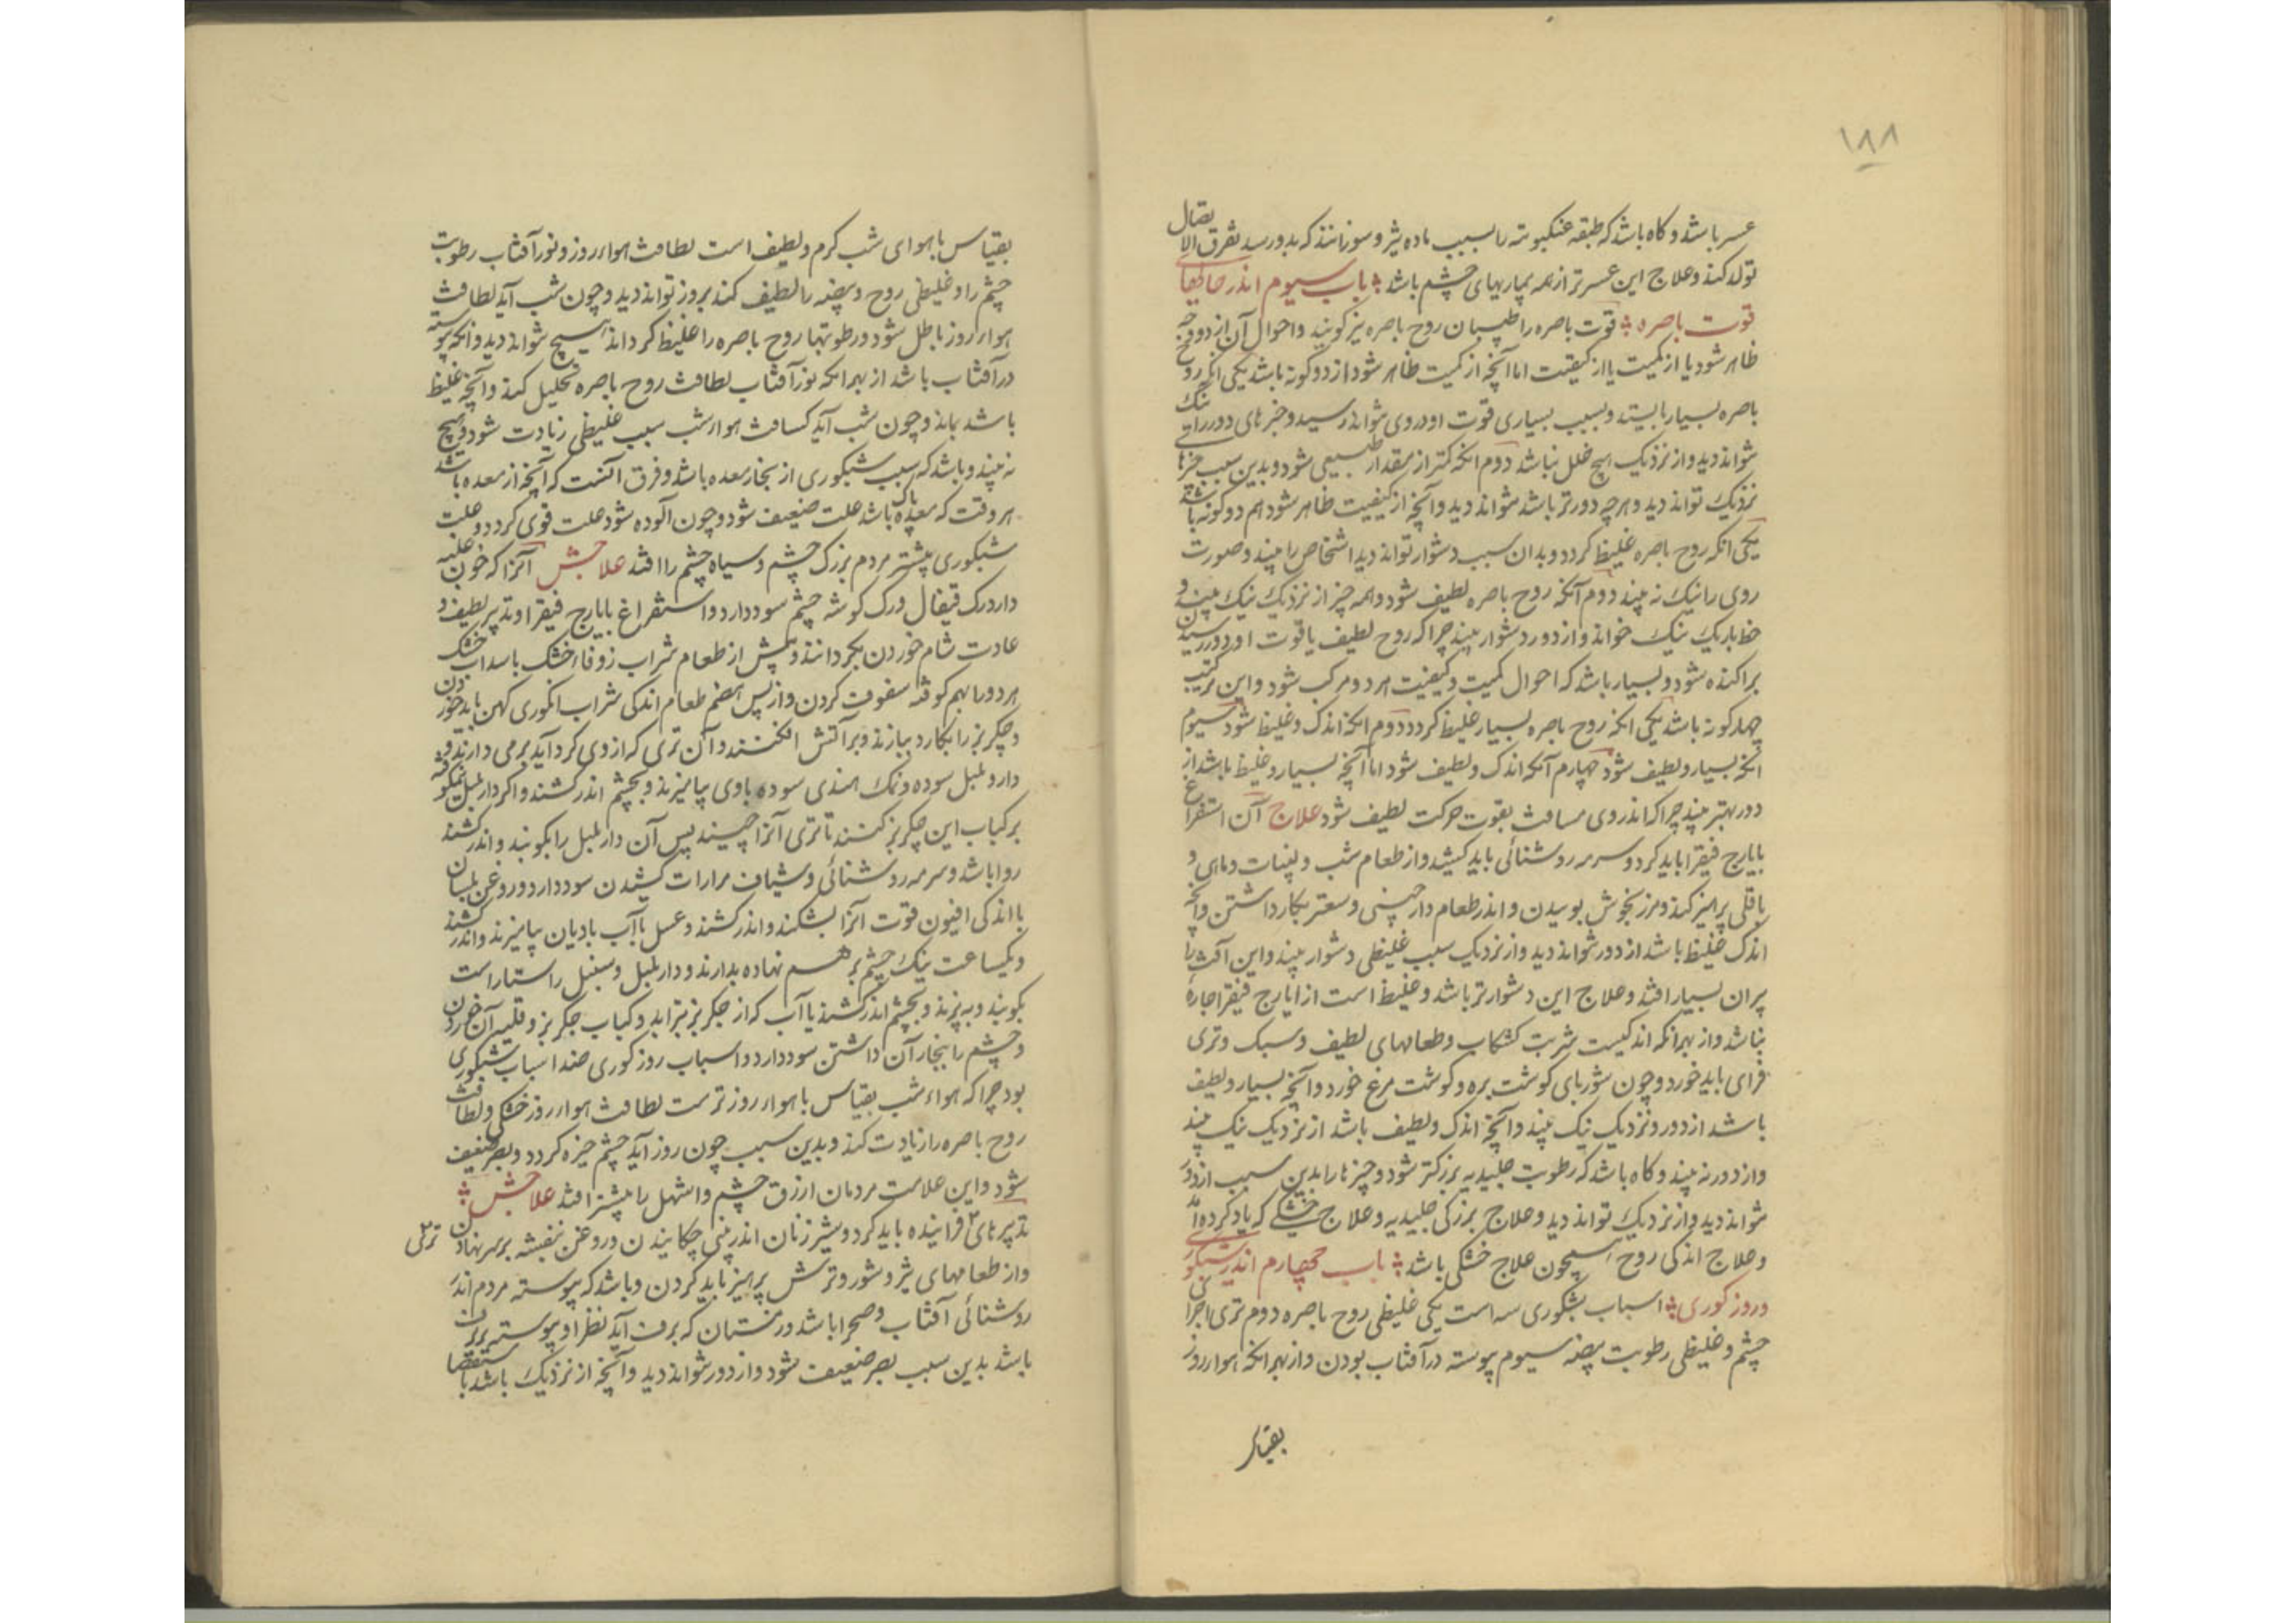 ۱۸۸
عسر باشد و کاه باشد که طبقه عنکبوتیه را بسبب ماده تیز و سوزانند که بدو رسد تفرق الاتصال
تولد کند و علاج این عسرتر از همه بیماریهای چشم باشد باب سیوم اندر حالهای
قوت باصره قوت باصره را طبیبان روح باصره نیز کویند و احوال آن از دو وجه
ظاهر شود یا از کمیت یا از کیفیت اما آنچه از کمیت ظاهر شود از دو کونه باشد یکی انکه روح
باصره بسیار باشد و بسبب بسیاری قوت او دروی تواند رسید و چیزهای دور را نیک
تواند دید و از نزدیک هیچ خلل نباشد دوم انکه کمتر از مقدار طبیعی شود و بدین سبب چیزها
نزدیک تواند دید و هرچه دورتر باشد نتواند دید و آنچه از کیفیت ظاهر شود هم دو کونه باشد
یکی انکه روح باصره غلیظ کردد و بدان سبب دشوار تواند دید اشخاص را بیند و صورت
روی را نیک نه بیند دوم آنکه روح باصره لطیف شود و همه چیز از نزدیک نیک بیند و
خط باریک نیک خواند و از دور دشوار بیند چرا که روح لطیف یا قوت او دور رسیدن
پراکنده شود و بسیار باشد که احوال کمیت و کیفیت هر دو مرکب شود و این ترکیب
چهار کونه باشد یکی انکه روح باصره بسیار غلیظ کردد دوم انکه اندک و غلیظ شود سیوم
انکه بسیار و لطیف شود چهارم آنکه اندک و لطیف شود اما آنچه بسیار و غلیظ باشد از
دور بهتر بیند چرا که اندر وی مسافت بقوت حرکت لطیف شود علاج آن استفراغ
بایارج فیقرا باید کرد و سرمه روشنائی باید کشید و از طعام شب و لبنیات و ماهی و
باقلی پرهیز کند و مرزنجوش بوییدن و اندر طعام دارچینی و سعتر بکار داشتن و آنچه
اندک غلیظ باشد از دور نتواند دید و از نزدیک بسبب غلیظی دشوار بیند و این آفت را
پیران بسیار افتد و علاج این دشوارتر باشد و غلیظ است از ایارج فیقرا چاره
نباشد و از بهر انکه اندکیست شربت کشکاب و طعامهای لطیف و سبک و تری
فزای باید خورد و چون شوربای کوشت بره و کوشت مرغ خورد و آنچه بسیار و لطیف
باشد از دور و نزدیک نیک بیند و آنچه اندک و لطیف باشد از نزدیک نیک بیند
و از دور نه بیند و کاه باشد که رطوبت جلیدیه بزرکتر شود و چیزها را بدین سبب از دور
نتواند دید و از نزدیک تواند دید و علاج بزرکی جلیدیه و علاج خشکی که یاد کرده اند
و علاج اندکی روح همچون علاج خشکی باشد باب چهارم اندر شبکوری
و روز کوری اسباب شبکوری سه است یکی غلیظی روح باصره دوم تری اجزای
چشم و غلیظی رطوبت بیضه سیوم پیوسته در آفتاب بودن و از بهر انکه هوا روز
بقیاس
بقیاس با هوای شب کرم و لطیف است لطافت هوا روز و نور آفتاب رطوبت
چشم را و غلیظی روح و بیضه را لطیف کند بروز تواند دید و چون شب آید لطافت
هواء روز باطل شود و رطوبتها روح باصره را غلیظ کرداند هیچ نتواند دید و انکه پیوسته
در آفتاب باشد از بهر انکه نور آفتاب لطافت روح باصره تحلیل کند و آنچه غلیظ
باشد بماند و چون شب آید کسافت هوا شب سبب غلیظی زیادت شود و هیچ
نه بیند و باشد که سبب شبکوری از بخار معده باشد و فرق آنست که آنچه از معده باشد
هر وقت که معده پاک باشد علت ضعیف شود و چون آلوده شود علت قوی کردد و علت
شبکوری بیشتر مردم بزرک چشم و سیاه چشم را افتد علاجش آنرا که خون غلبه
دارد رک قیفال و رک کوشه چشم سود دارد و استفراغ بایارج فیقرا و تدبیر لطیف و
عادت شام خوردن بکردانند و پیش از طعام شراب زوفا خشک با سداب خشک
هر دو را بهم کوفته سفوف کردن و از پس هضم طعام اندکی شراب انکوری کهن باید خوردن
و جکر بز را بکارد بیازند و بر آتش افکنند و آن تری که از وی کرد آید برمی دارند و
دار و بلبل سوده و نمک هندی سوده باوی بیامیزند و بچشم اندر کشند و اکر دار بلبل کوفته
بر کباب این جکر بز کنند تا تری آنرا چیند پس آن دار بلبل را بکوبند و اندر کشند
روا باشد و سرمه روشنائی و شیاف مرارات کشیدن سود دارد و روغن بلسان
با اندکی افیون قوت آنرا بشکند و اندر کشند و عسل با آب بادیان بیامیزند و اندر کشند
و یکساعت نیک چشم بر هم نهاده بدارند و دار بلبل و سنبل راستا راست
بکوبند و به بیزند و بچشم اندر کشند با آب که از جکر بز بتراید و کباب جکر بز و قلیه آن خوردن
و چشم را ببخار آن داشتن سود دارد و اسباب روز کوری ضد اسباب شبکوری
بود چرا که هواء شب بقیاس با هواء روز ترست لطافت هواء روز خشکی و لطافت
روح باصره را زیادت کند و بدین سبب چون روز آید چشم خیره کردد و بصر ضعیف
شود و این علامت مردمان ازرق چشم و اشهل را بیشتر افتد علاجش
تدبیرهای فزاینده باید کرد و شیر زنان اندر بینی چکانیدن و روغن بنفشه بر سر نهادن
تری
و از طعامهای تیز و شور و ترش پرهیز باید کردن و باشد که پیوسته مردم اندر
روشنائی آفتاب و صحرا باشد و زمستان که برف آید نظر او پیوسته بر برف
باشد بدین سبب بصر ضعیف شود و از دور نتواند دید و آنچه از نزدیک باشد باستقصا